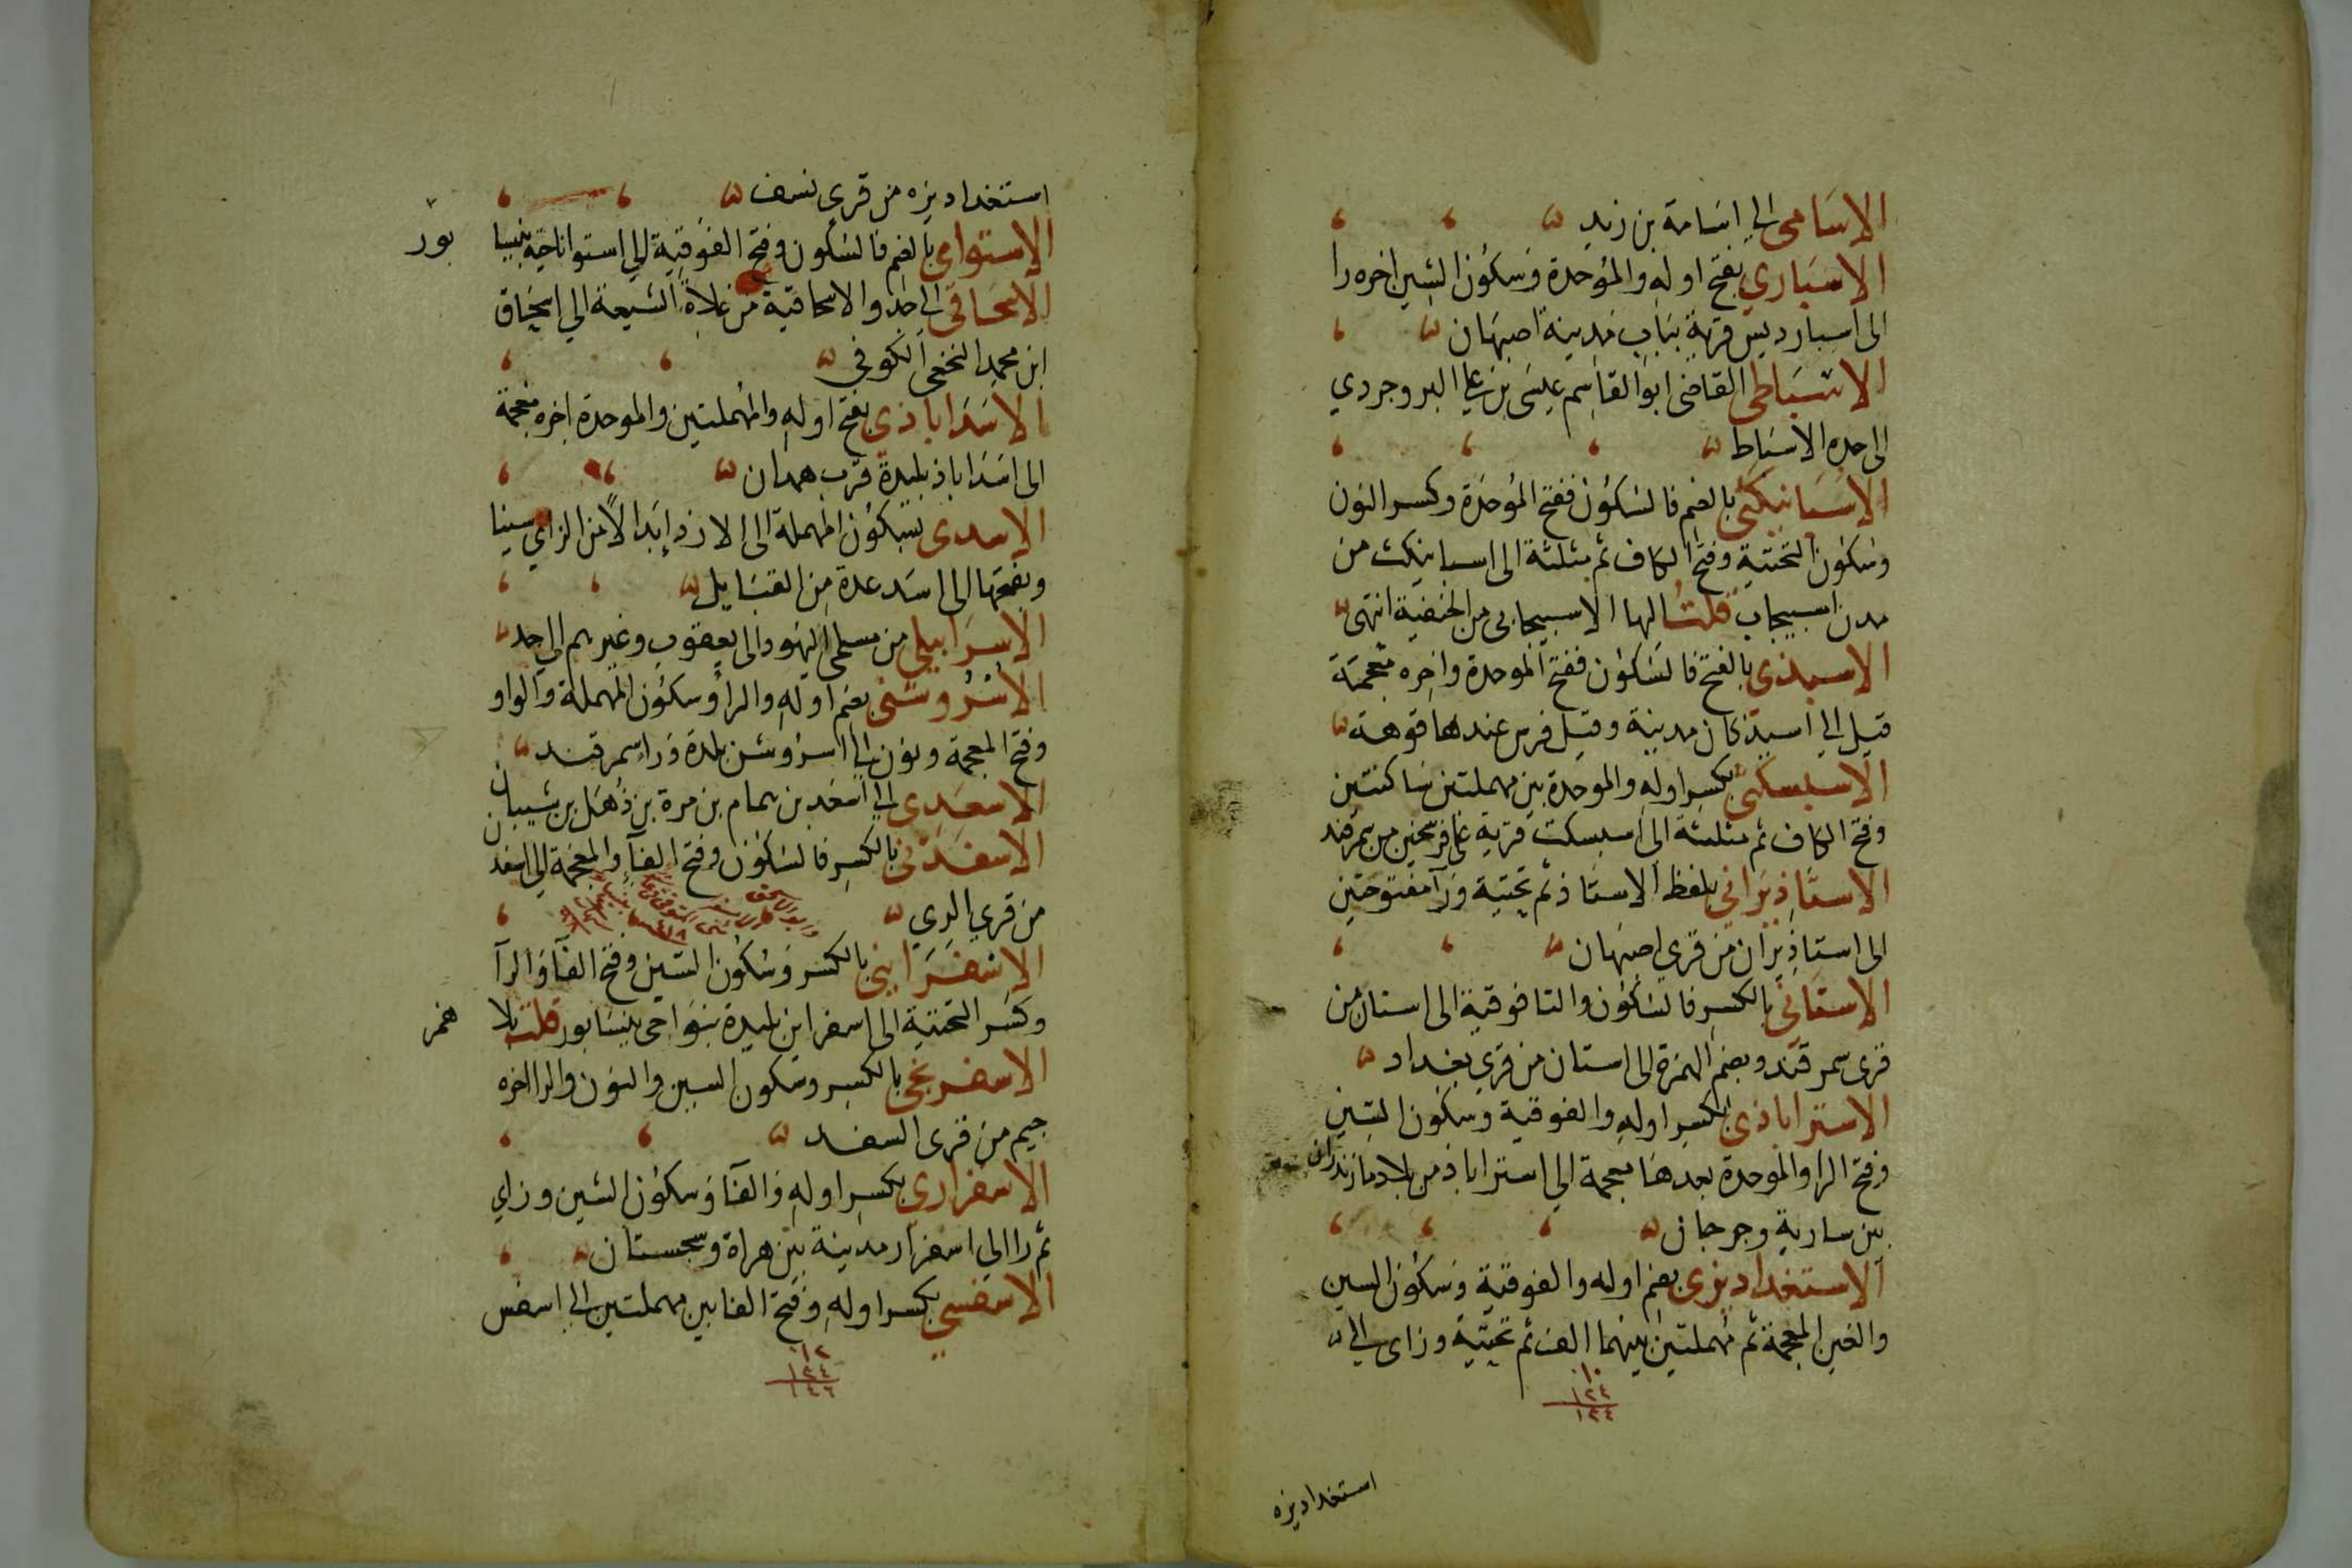 الاسامى الى اسامة بن زيد
الاسبارى بفتح اوله والموحدة وسكون السين اخره را
الى اسبار ديس قرية بباب مدينة اصبهان
الاسباطى القاضى ابوالقاسم عيسى بن على البروجردي
الى جده الاسباط
الاسبانيكثى بالضم فالسكون ففتح الموحدة وكسر النون
وسكون التحتية وفتح الكاف ثم مثلثة الى اسبانيكث من
مدن اسبيجاب قلت الها الاسبيجابى من الحنفية انتهى
الاسبذى بالفتح فالسكون ففتح الموحدة واخره معجمة
قيل الى اسبذ كان مدينة وقيل فرس عندها قوهة
الاسبسكثى بكسر اوله والموحدة بين مهملتين ساكنتين
وفتح الكاف ثم مثلثة الى اسبسكث قرية على فرسخين من سمرقند
الاستاذبرانى بلفظ الاستاذ ثم تحتية ورا مفتوحتين
الى استاذبران من قرى اصبهان
الاستانى بالكسر فالسكون والتا فوقية الى استان من
قرى سمرقند وبضم الهمزة الى استان من قرى بغداد
الاستراباذى بكسر اوله والفوقية وسكون السين
وفتح الرا والموحدة بعدها معجمة الى استراباذ من بلاد مازندران
بين سارية وجرجان
الاستغداديزى بضم اوله والفوقية وسكون السين
والغين المعجمة ثم مهملتين بينهما الف ثم تحتية وزاى الى
١٠
١٢٤
١٣٤
استغداديزه
استغداديزه من قرى نسف
الاستوامى بالضم فالسكون وفتح الفوقية الى استوا ناحية بنيسا بور
الاسحاقى الى جد والاسحاقية من غلاة الشيعة الى اسحاق
ابن محمد النخعى الكوفى
الاسداباذى بفتح اوله والمهملتين والموحدة اخره معجمة
الى اسداباذ بليدة قرب همدان
الاسدى بسكون المهملة الى الازد ابدالا من الزاى سينا
وبفتحها الى اسد عدة من القبايل
الاسرابيلى من مسلمى اليهود الى يعقوب وغيرهم الى جد
الاسروشنى بضم اوله والرا وسكون المهملة والواو
وفتح المعجمة ونون الى اسروشن بلدة ورا سمرقند
الاسعدى الى اسعد بن همام بن مرة بن ذهل بن شيبان
الاسفذنى بالكسر فالسكون وفتح الفا والمعجمة الى اسفذن
من قرى الرى
الاسفرايينى بالكسر وسكون السين وفتح الفا والرا
وكسر التحتية الى اسفراين بليدة بنواحى نيسابور قلت بلا همز
الاسفرنجى بالكسر وسكون السين والنون والرا اخره
جيم من قرى السغد
الاسفزارى بكسر اوله والفا وسكون السين وزاي
ثم را الى اسفزار مدينة بين هراة وسجستان
الاسفسى بكسر اوله وفتح الفا بين مهملتين الى اسفس
١٢
١٣٤
١٤٦